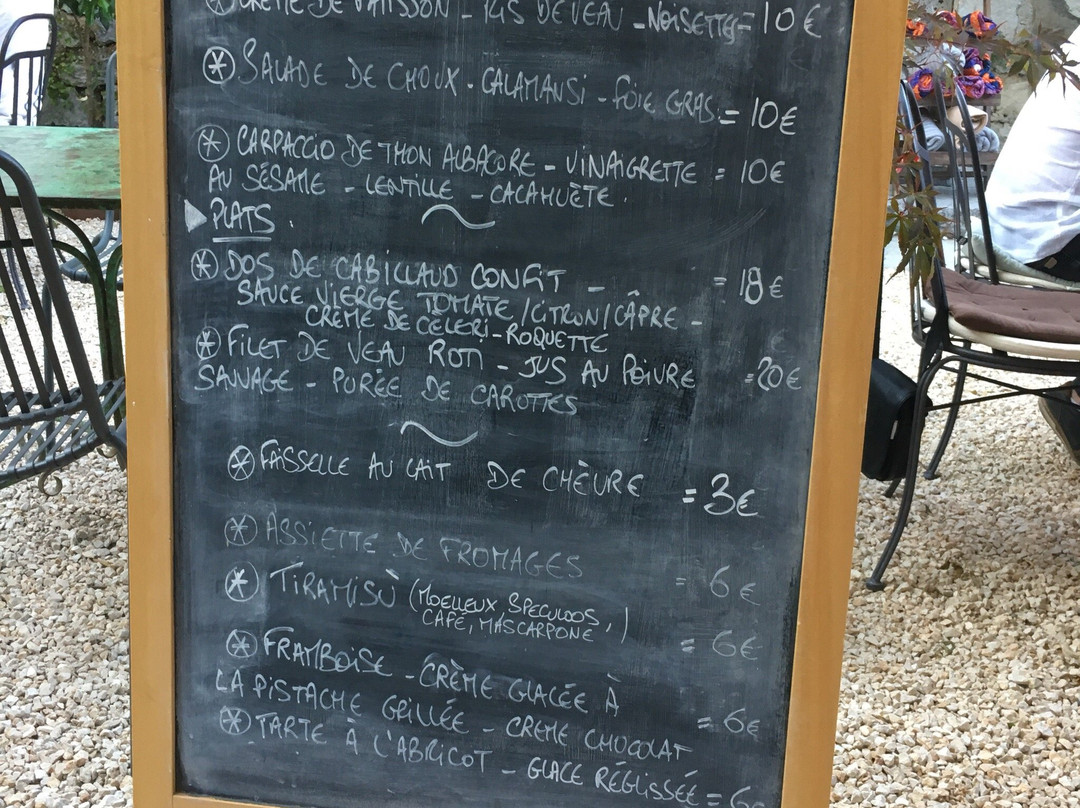 CRÈME DE PATISSON - RIS DE VEAU - NOISETTE = 10 €
SALADE DE CHOUX - CALAMANSI - FOIE GRAS = 10€
CARPACCIO DE THON ALBACORE - VINAIGRETTE = 10€
AU SÉSAME - LENTILLE - CACAHUÈTE.
PLATS.
DOS DE CABILLAUD CONFIT - = 18€
SAUCE VIERGE TOMATE / CITRON / CÂPRE -
CRÈME DE CELERI - ROQUETTE
FILET DE VEAU ROTI - JUS AU POIVRE = 20€
SAUVAGE - PURÉE DE CAROTTES
FAISSELLE AU LAIT DE CHÈVRE = 3€
ASSIETTE DE FROMAGES = 6€
TIRAMISÙ (MOELLEUX, SPECULOOS,
CAFÉ, MASCARPONE) = 6€
FRAMBOISE - CRÈME GLACÉE À
LA PISTACHE GRILLÉE - CREME CHOCOLAT = 6€
TARTE À L'ABRICOT - GLACE RÉGLISSÉE = 6€